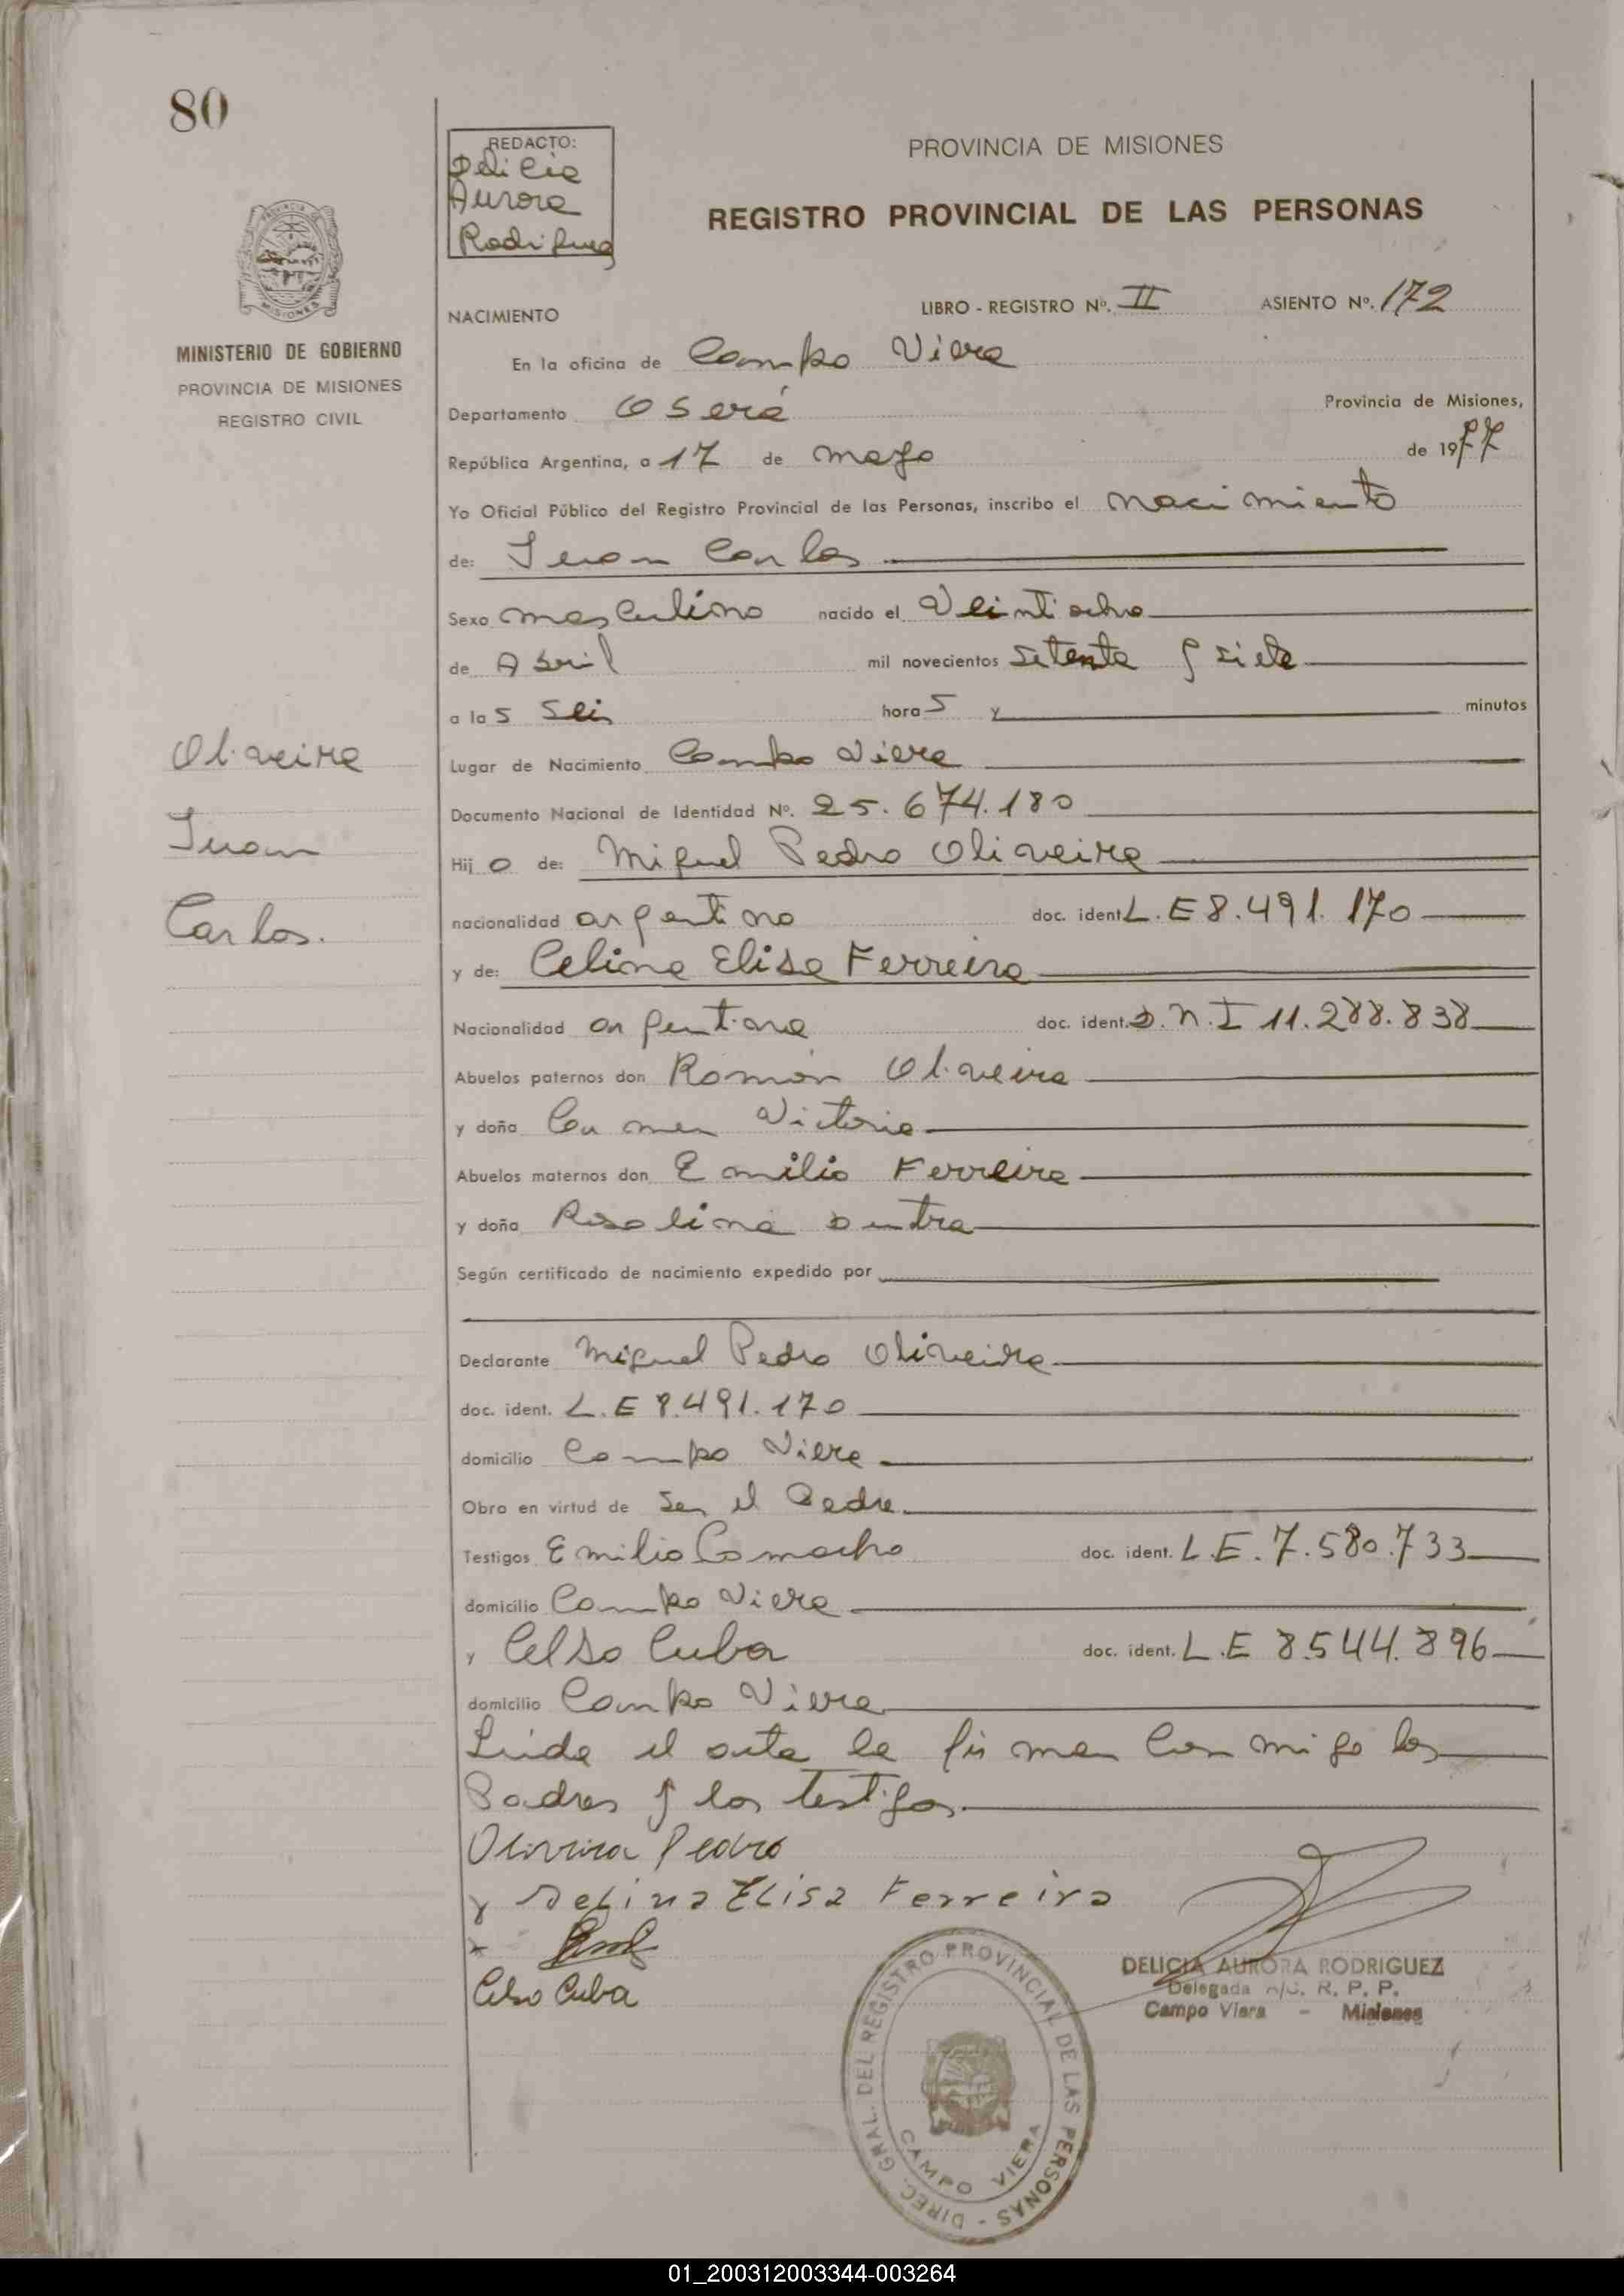 80
REDACTO:
Delicia
Aurora
Rodriguez
PROVINCIA DE MISIONES
REGISTRO PROVINCIAL DE LAS PERSONAS
MISIONES
MINISTERIO DE GOBIERNO
PROVINCIA DE MISIONES
REGISTRO CIVIL
NACIMIENTO LIBRO - REGISTRO Nº. II ASIENTO Nº. 172
En la oficina de Campo Viera
Departamento Oberá Provincia de Misiones,
República Argentina, a 17 de mayo de 1977
Yo Oficial Público del Registro Provincial de las Personas, inscribo el nacimiento
de: Juan Carlos
Sexo masculino nacido el Veintiocho
de Abril mil novecientos setenta y siete
a las seis horas y minutos
Oliveira
Juan
Carlos.
Lugar de Nacimiento Campo Viera
Documento Nacional de Identidad Nº. 25.674.180
Hijo de: Miguel Pedro Oliveira
nacionalidad argentino doc. ident. L.E 8.491.170
y de: Celina Elisa Ferreira
Nacionalidad argentina doc. ident. D.N.I 11.288.838
Abuelos paternos don Román Oliveira
y doña Carmen Victoria
Abuelos maternos don Emilio Ferreira
y doña Rosalina Dutra
Según certificado de nacimiento expedido por
Declarante Miguel Pedro Oliveira
doc. ident. L.E 8.491.170
domicilio Campo Viera
Obra en virtud de ser el Padre
Testigos Emilio Camacho doc. ident. L.E. 7.580.733
domicilio Campo Viera
y Celso Cuba doc. ident. L.E 8.544.896
domicilio Campo Viera
Leida el acta la firman conmigo los
Padres y los testigos.
Oliveira Pedro
Selina Elisa Ferreira
Celso Cuba
DELICIA AURORA RODRIGUEZ
Delegada R. P. P.
Campo Viera - Misiones
DIREC. GRAL. DEL REGISTRO PROVINCIAL DE LAS PERSONAS -
CAMPO VIERA
01_200312003344-003264